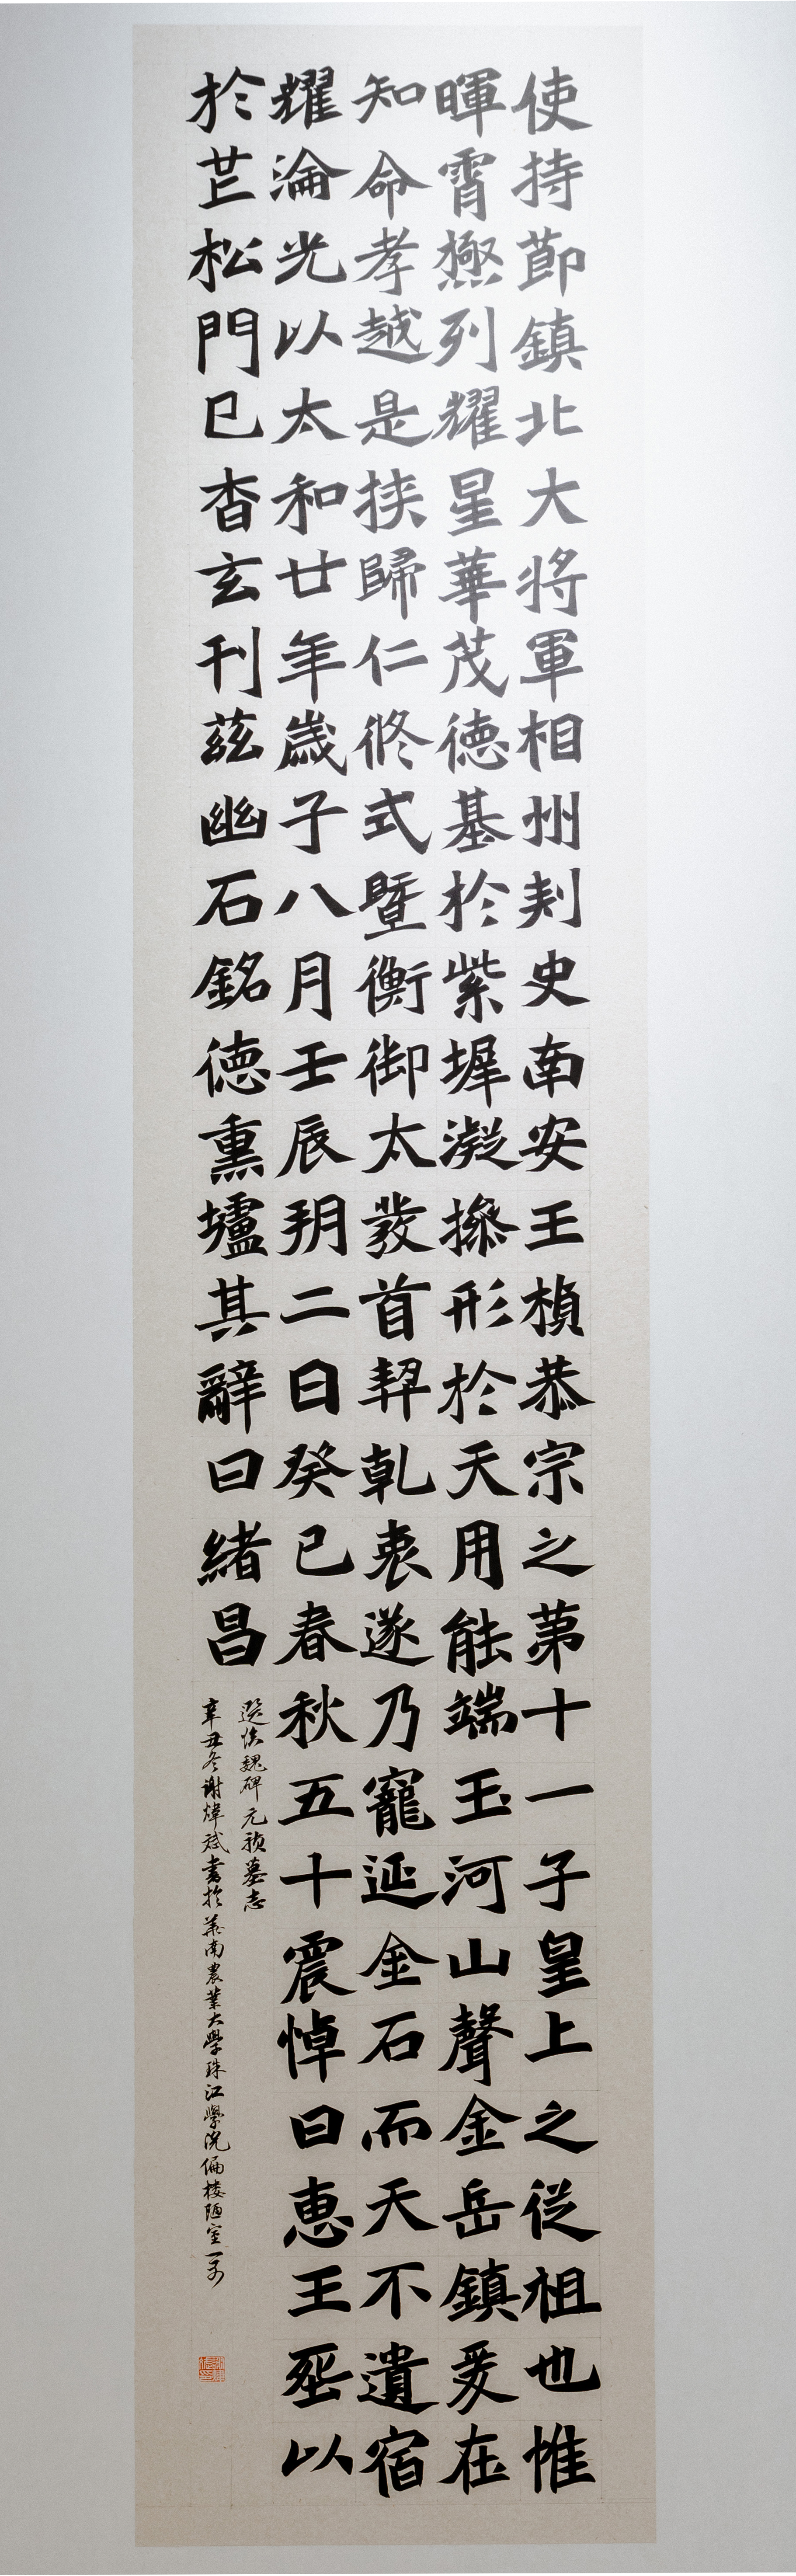 使持莭鎮北大将軍相州刾史南安王楨恭宗之苐十一子皇上之従祖也惟
暉霄極列耀星華茂徳基於紫墀凝操形於天用能端玉河山聲金岳鎮爰在
知命孝越是挟歸仁佟式暨衡御太發首契乹衷遂乃寵延金石而天不遺宿
耀淪光以太和廿年歲子八月壬辰玥二日癸巳春秋五十震悼曰惠王𦵏以
於芒松門已杳玄刊茲幽石銘徳熏壚其辭曰緒昌
選臨魏碑元禎墓志
辛丑冬谢煒斌書於華南農業大學珠江學院偏楼陋室